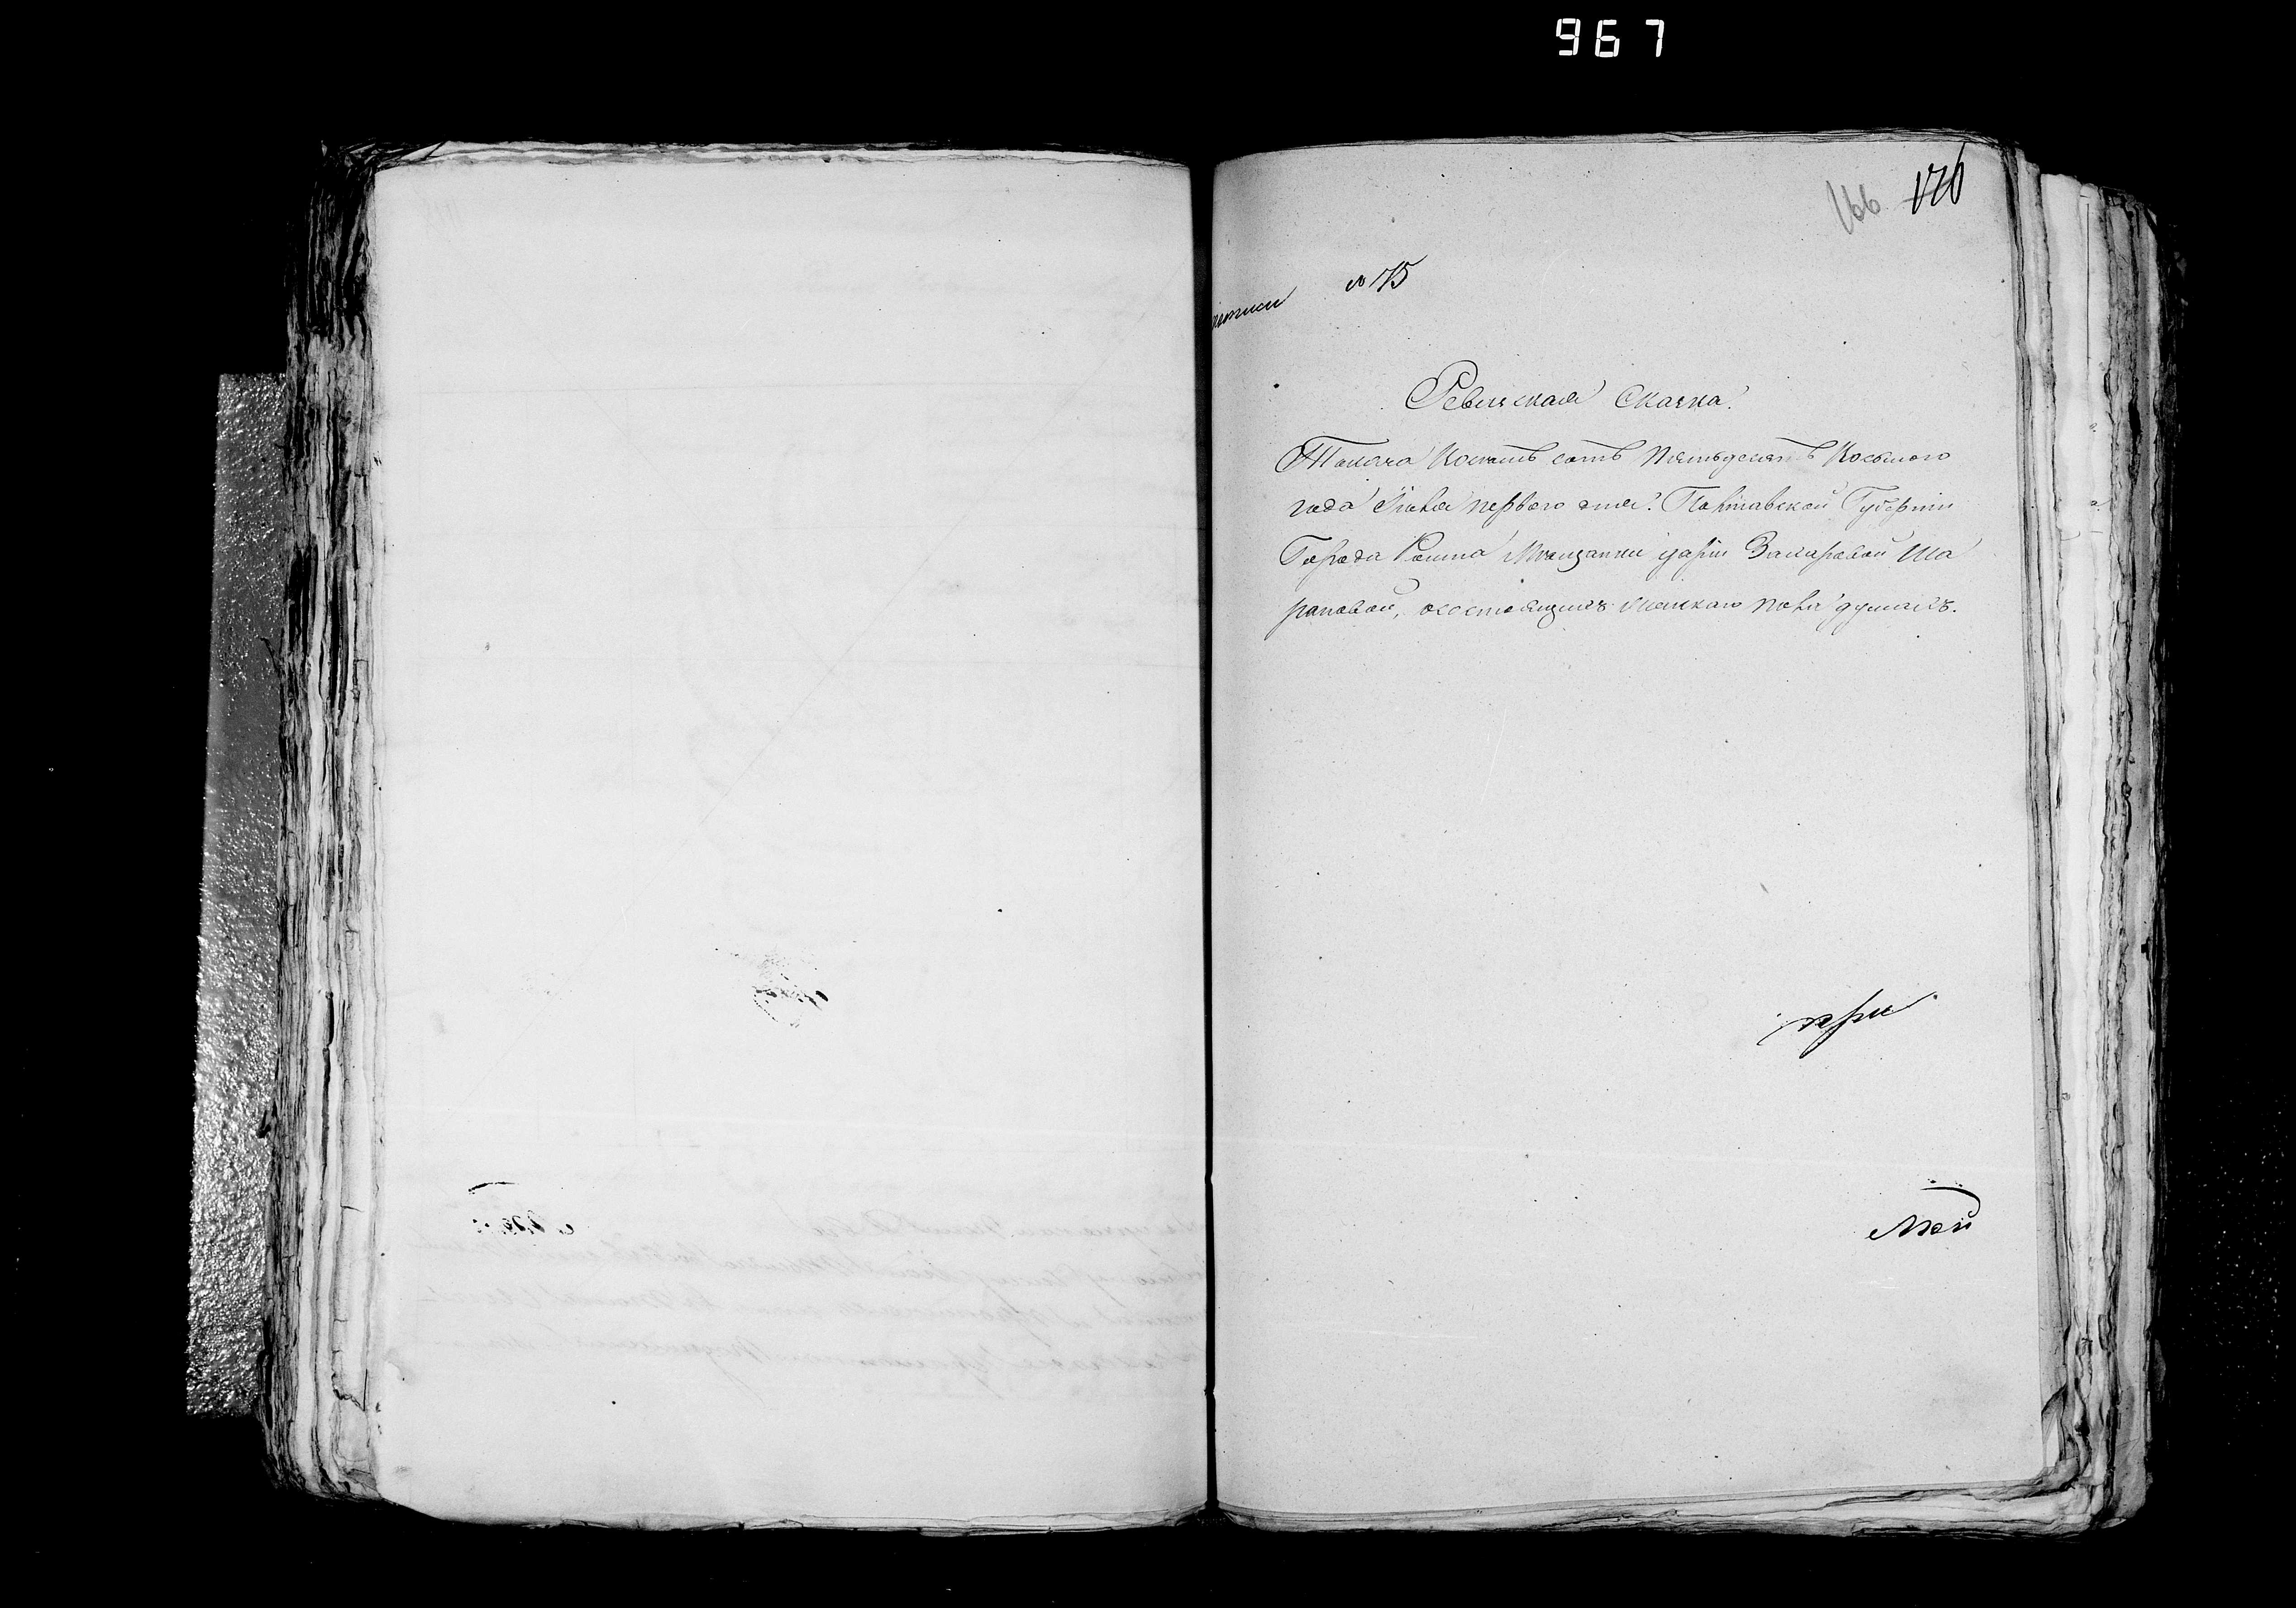 967
166 176
№ 175
Ревизская Сказка.
Тысяча восемь сотъ пятьдесятъ восьмого
года Июня первого дня. Полтавской Губерніи
Города Ромна Мещанки Дарiи Захаровой Ша
раповой, о состоящихъ женскаго пола душахъ.
при